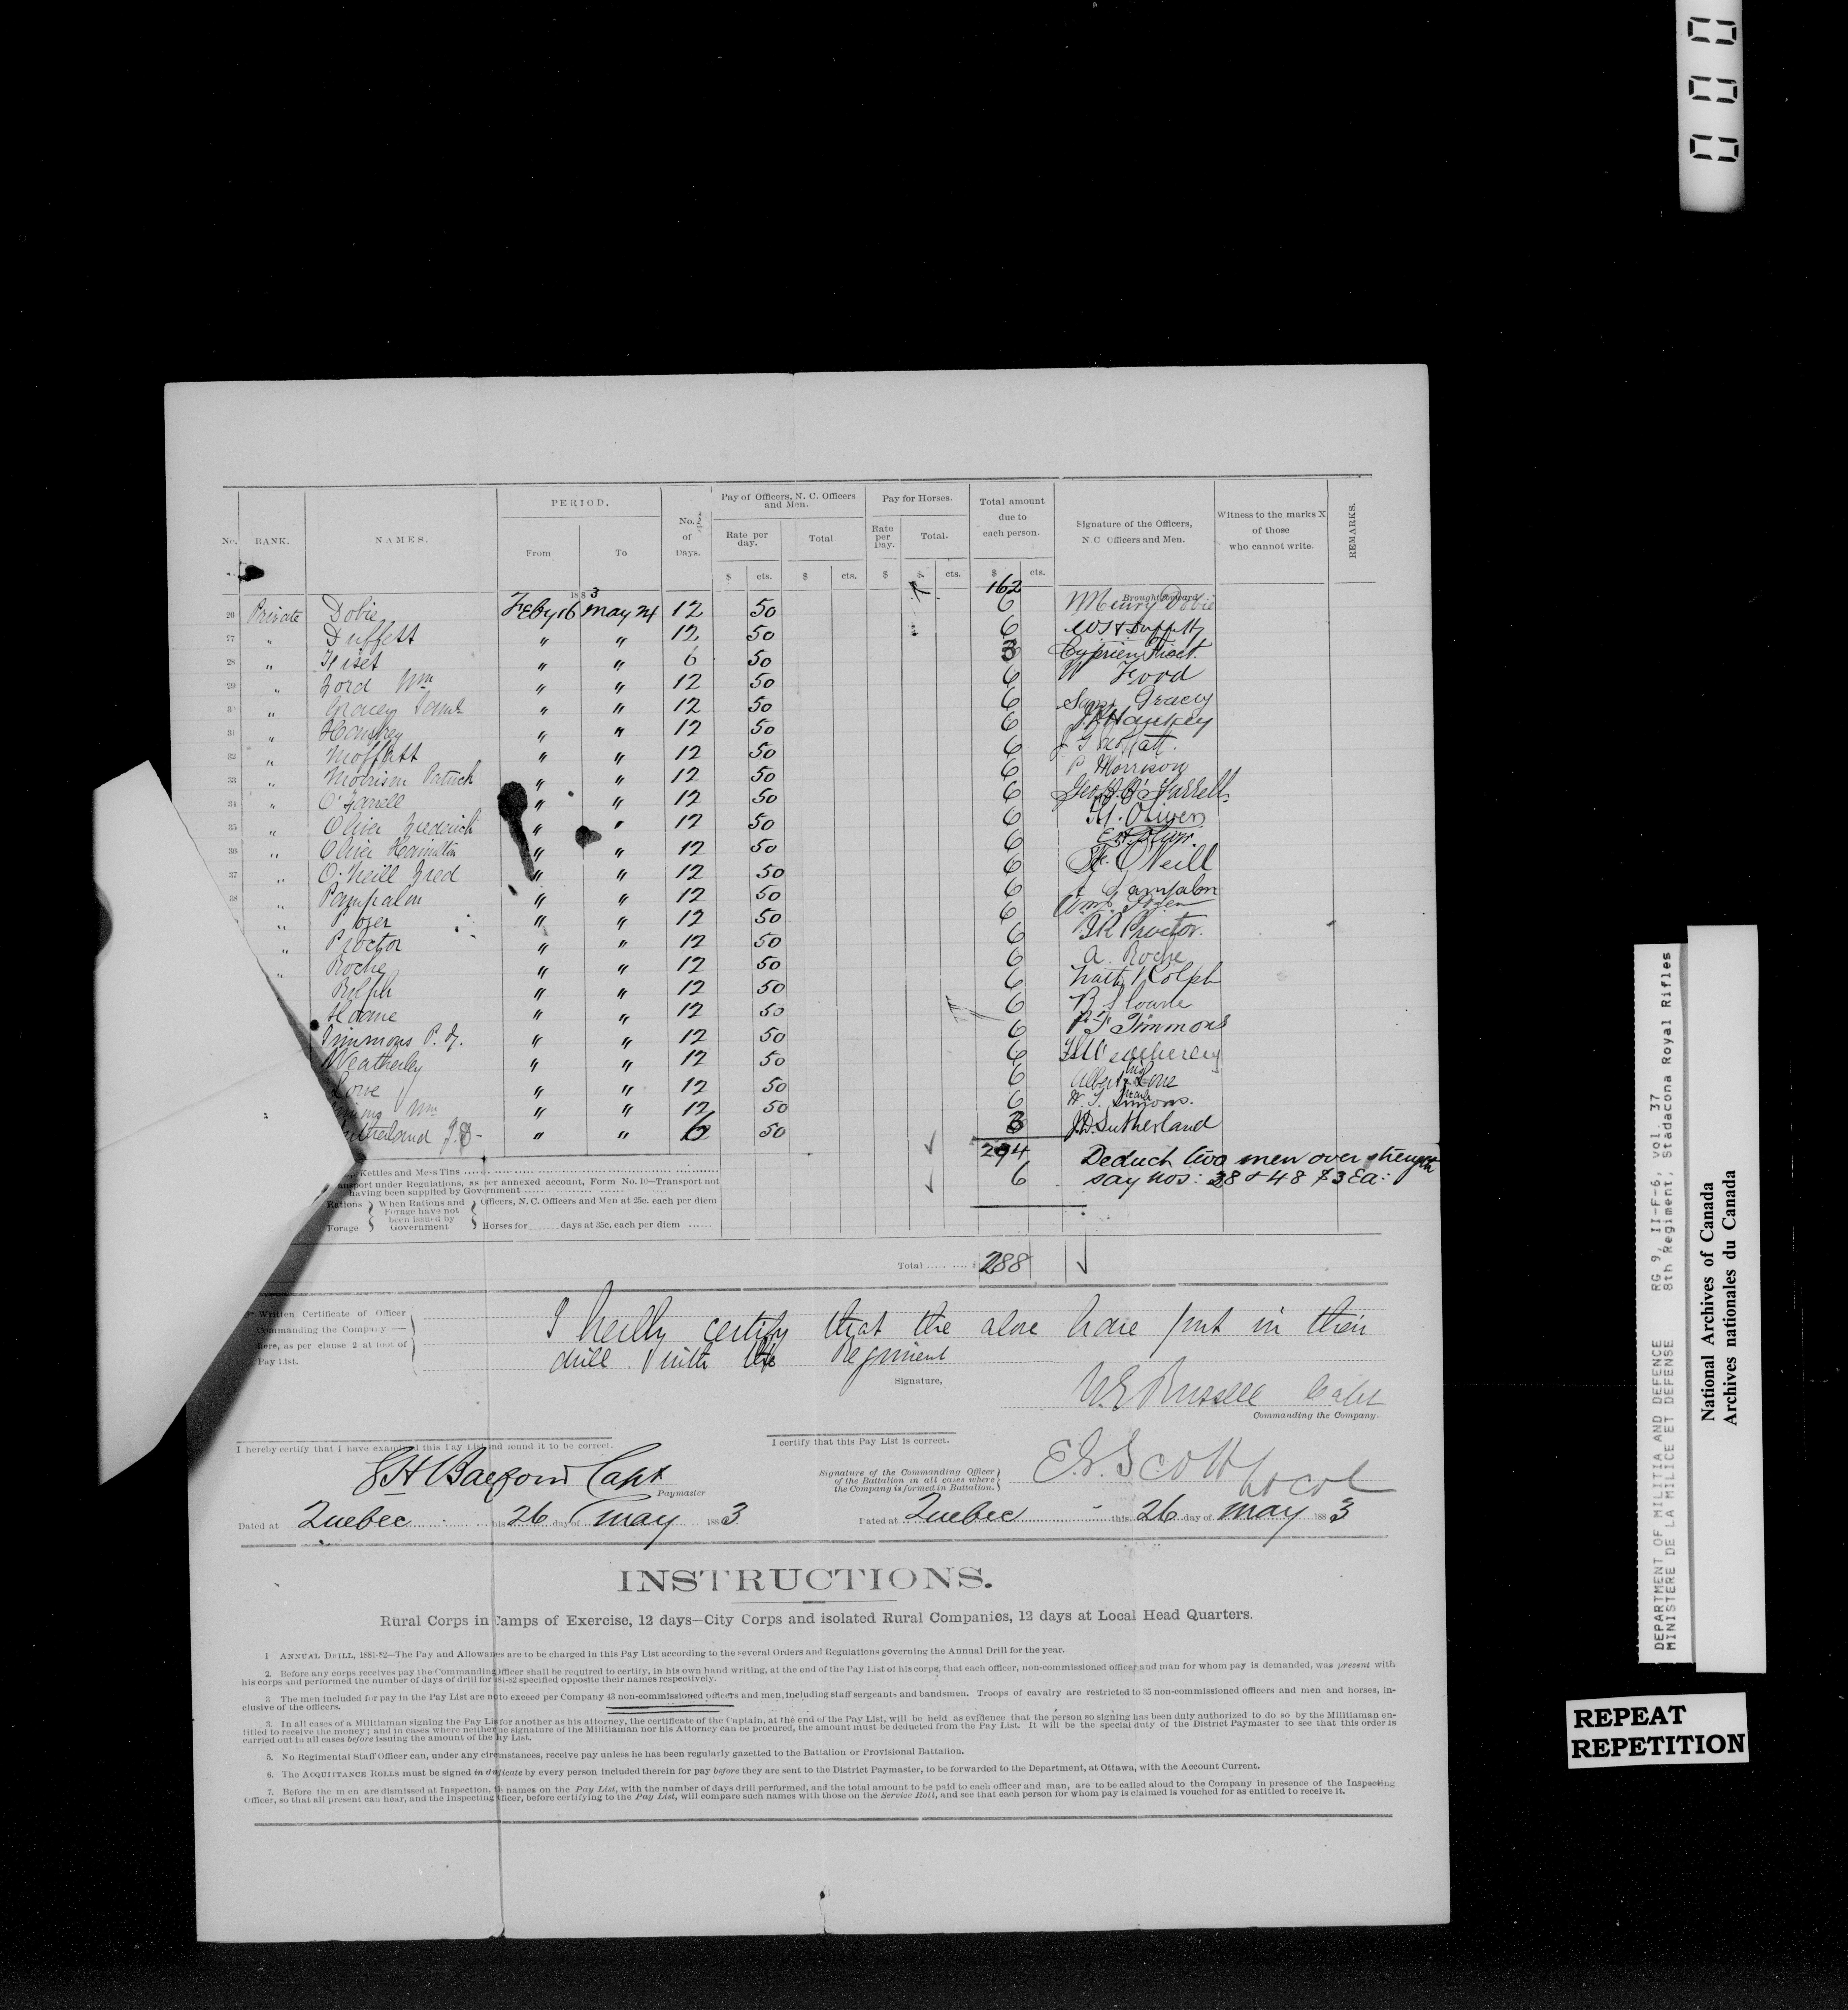 No. RANK. NAMES. PERIOD. From To No. of Days. Pay of Officers, N. C. Officers and Men. Rate per day. Total Pay for Horses. Rate per Day. Total. Total amount due to each person. Signature of the Officers, N. C. Officers and Men. Witness to the marks X of those who cannot write. REMARKS.
$ cts. $ cts. $ $ cts. $ cts.
1883 162 Brought forward
26 Private Dobie Feby 16 May 24 12 50 6 Henry Dobie
27 " Duffett " " 12 50 6 Duffett
28 " Fiset " " 6 50 3 Cyprien Fiset.
29 " Ford Wm " " 12 50 6 W Ford
30 " Gracey Saml " " 12 50 6 Saml Gracey
31 " " " 12 50 6
32 " Moffatt " " 12 50 6 J G Moffatt.
33 " Morrison Patrick " " 12 50 6 P Morrison
34 " O'Farrell " " 12 50 6 Geo. O'Farrell
35 " Oliver Frederick " " 12 50 6 Oliver
36 " Oliver Hamilton " " 12 50 6
37 " O'Neill Fred " " 12 50 6 F. O'Neill
38 " Pampalon " " 12 50 6 Pampalon
" Pozer " " 12 50 6 Wm. Pozer
" Proctor " " 12 50 6 Proctor.
" Roche " " 12 50 6 A. Roche
Rolph " " 12 50 6 Rolph
Sloane " " 12 50 6 R Sloane
Timmons P. F. " " 12 50 6 P. F. Timmons
Weatherley " " 12 50 6
Lowe " " 12 50 6 Albert his x mark Lowe
Wm " " 12 50 6 Simons.
Sutherland J.D. " " 6 50 3 J.D. Sutherland
294 Deduct two men over strength
6 say nos: 28 & 48 $3 Ea:
Kettles and Mess Tins
Transport under Regulations, as per annexed account, Form No. 10—Transport not
having been supplied by Government
Rations Forage When Rations and Forage have not been issued by Government Officers, N. C. Officers and Men at 25c. each per diem
Horses for days at 35c. each per diem
Total $ 288
Written Certificate of Officer
Commanding the Company—
here, as per clause 2 at foot of
Pay List.
I hereby certify that the above have put in their
drill with the Regiment
Signature,
W.E Russell Capt
Commanding the Company.
I hereby certify that I have examined this Pay List and found it to be correct.
Capt
Paymaster
Dated at Quebec this 26 day of May 1883
I certify that this Pay List is correct.
Signature of the Commanding Officer
of the Battalion in all cases where
the Company is formed in Battalion.
E.G. Scott Lt Col
Dated at Quebec this 26 day of May 1883
INSTRUCTIONS.
Rural Corps in Camps of Exercise, 12 days—City Corps and isolated Rural Companies, 12 days at Local Head Quarters.
1 ANNUAL DRILL, 1881-82—The Pay and Allowances are to be charged in this Pay List according to the several Orders and Regulations governing the Annual Drill for the year.
2. Before any corps receives pay the Commanding Officer shall be required to certify, in his own hand writing, at the end of the Pay List of his corps, that each officer, non-commissioned officer and man for whom pay is demanded, was present with
his corps and performed the number of days of drill for 1881-82 specified opposite their names respectively.
3 The men included for pay in the Pay List are not to exceed per Company 43 non-commissioned officers and men, including staff sergeants and bandsmen. Troops of cavalry are restricted to 35 non-commissioned officers and men and horses, in-
clusive of the officers.
3. In all cases of a Militiaman signing the Pay List for another as his attorney, the certificate of the Captain, at the end of the Pay List, will be held as evidence that the person so signing has been duly authorized to do so by the Militiaman en-
titled to receive the money; and in cases where neither the signature of the Militiaman nor his Attorney can be procured, the amount must be deducted from the Pay List. It will be the special duty of the District Paymaster to see that this order is
carried out in all cases before issuing the amount of the Pay List.
5. No Regimental Staff Officer can, under any circumstances, receive pay unless he has been regularly gazetted to the Battalion or Provisional Battalion.
6. The ACQUITTANCE ROLLS must be signed in duplicate by every person included therein for pay before they are sent to the District Paymaster, to be forwarded to the Department, at Ottawa, with the Account Current.
7. Before the men are dismissed at Inspection, the names on the Pay List, with the number of days drill performed, and the total amount to be paid to each officer and man, are to be called aloud to the Company in presence of the Inspecting
Officer, so that all present can hear, and the Inspecting Officer, before certifying to the Pay List, will compare such names with those on the Service Roll, and see that each person for whom pay is claimed is vouched for as entitled to receive it.
000
DEPARTMENT OF MILITIA AND DEFENCE RG 9, II-F-6, vol. 37
MINISTERE DE LA MILICE ET DEFENSE 8th Regiment, Stadacona Royal Rifles
National Archives of Canada
Archives nationales du Canada
REPEAT
REPETITION